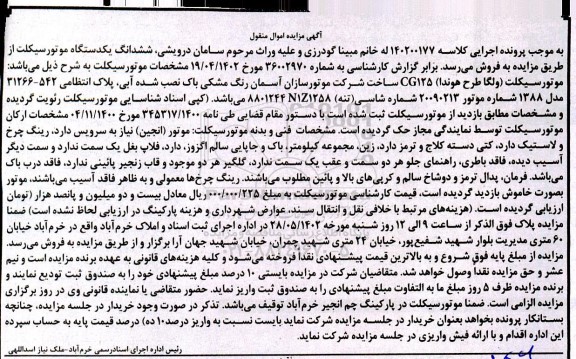 آگهی مزایده اموال منقول
به موجب پرونده اجرایی کلاسه ۱۴۰۲۰۰۱۷۷ له خانم مبینا گودرزی و علیه وراث مرحوم سامان درویشی، ششدانگ یکدستگاه موتورسیکلت از
طریق مزایده به فروش می‌رسد. برابر گزارش کارشناسی به شماره ۳۶۰۰۲۹۷۰ مورخ ۱۹/۰۴/۱۴۰۲ مشخصات موتورسیکلت به شرح ذیل می‌باشد:
موتورسیکلت (ولگا طرح هوندا) CG۱۲۵ ساخت شرکت موتورسازان آسمان رنگ مشکی باک نصب شده آبی، پلاک انتظامی ۵۴۲-۳۱۲۶۶
مدل ۱۳۸۸ شماره موتور ۲۰۰۹۰۲۱۳ شماره شاسی (تنه) N۱Z۱۲۵A ۸۸۰۱۲۴۴ می‌باشد. (کپی اسناد شناسایی موتورسیکلت رئویت گردیده
و مشخصات مطابق بازدید از موتورسیکلت ثبت شده است) با دستور مقام قضایی طی نامه ۳۴۵۳۱۷/۱۴۰۰ مورخ ۰۴/۱۱/۱۴۰۰ مشخصات ارکان
موتورسیکلت توسط نمایندگی مجاز حک گردیده است. مشخصات فنی و بدنه موتورسیکلت: موتور (انجین) نیاز به سرویس دارد، رینگ چرخ
و لاستیک دارد، کتی دسته کلاج و ترمز دارد، زین، مجموعه کیلومتر، باک و جاپایی سالم اگزوز، دارد، فلاپ بغل یک سمت ندارد و سمت دیگر
آسیب دیده، فاقد باطری، راهنمای جلو هر دو سمت و عقب یک سمت ندارد، گلگیر هر دو موجود و قاب زنجیر پائینی ندارد، فاقد درب باک
می‌باشد. فرمان، پدال ترمز و دوشاخ سالم و کرپی‌های بالا و پائین مطلوب می‌باشند. رینگ چرخ‌ها معمولی و به ظاهر فاقد آسیب می‌باشند، موتور
بصورت خاموش بازدید گردیده است، قیمت کارشناسی موتورسیکلت به مبلغ ۰۰۰/۰۰۰/۲۲۵ ریال معادل بیست و دو میلیون و پانصد هزار (تومان
ارزیابی گردیده است. (هزینه‌های مرتبط با خلافی نقل و انتقال سند، عوارض شهرداری و هزینه پارکینگ در ارزیابی لحاظ نشده است) ضمنا
مزایده پلاک فوق الذکر از ساعت ۹ الی ۱۲ روز شنبه مورخه ۲۸/۰۵/۱۴۰۲ در اداره اجرای ثبت اسناد و املاک خرم‌آباد واقع در خرم‌آباد خیابان
۶۰ متری مدیریت بلوار شهید شفیع‌پور، خیابان ۲۴ متری شهید چمران، خیابان شهید جهان آرا برگزار و از طریق مزایده به فروش می‌رسد.
مزایده از مبلغ پایه فوق شروع و به بالاترین قیمت پیشنهادی نقدا فروخته می‌شود و کلیه هزینه‌های قانونی به عهده برنده مزایده است و نیم
عشر و حق مزایده نقدا وصول خواهد شد. متقاضیان شرکت در مزایده بایستی ۱۰ درصد مبلغ پیشنهادی خود را به صندوق ثبت تودیع نمایند و
برنده مزایده ظرف ۵ روز مبلغ ما به التفاوت مبلغ پیشنهادی را به صندوق ثبت واریز نماید. حضور متقاضی یا نماینده قانونی وی در روز برگزاری
مزایده الزامی است. ضمنا موتورسیکلت در پارکینگ چم انجیر خرم‌آباد توقیف می‌باشد. تذکر در صورت وجود خریدار در جلسه مزایده، چنانچه
بستانکار پرونده بخواهد بعنوان خریدار در جلسه مزایده شرکت نماید بایست نسبت به واریز درصد ۱۰ ده) درصد قیمت پایه به حساب سپرده
این اداره اقدام و با ارائه فیش واریزی در جلسه مزایده شرکت نماید.
رئیس اداره اجرای اسنادرسمی خرم‌آباد -ملک نیاز اسداللهی